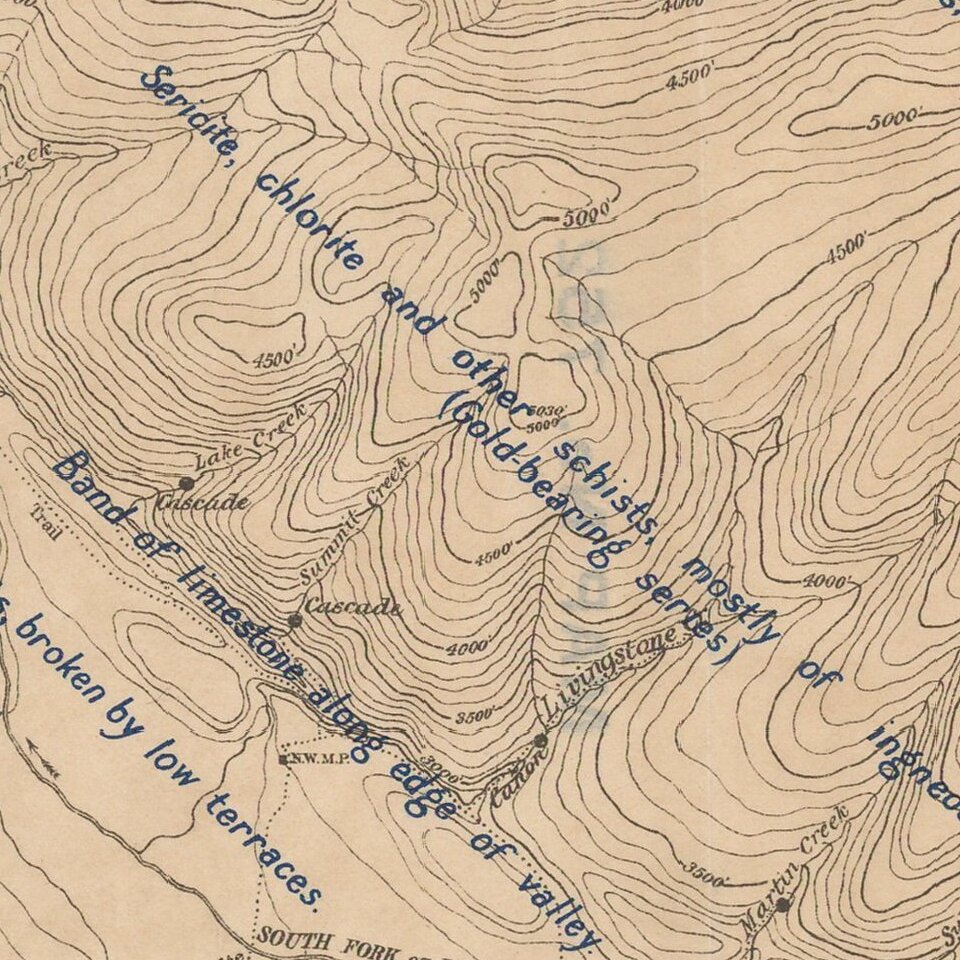 4000'
4500'
5000'
Sericite, chlorite and other schists, mostly of
(Gold-bearing series)
5000'
4500'
5000'
4500'
5030'
5000'
Lake Creek
Cascade
Summit Creek
Band of limestone along edge of valley.
Trail
4500'
4000'
Cascade
broken by low terraces.
Livingstone
4000'
3500'
N.W.M.P.
3000'
Canyon
3500'
Martin Creek
SOUTH FORK